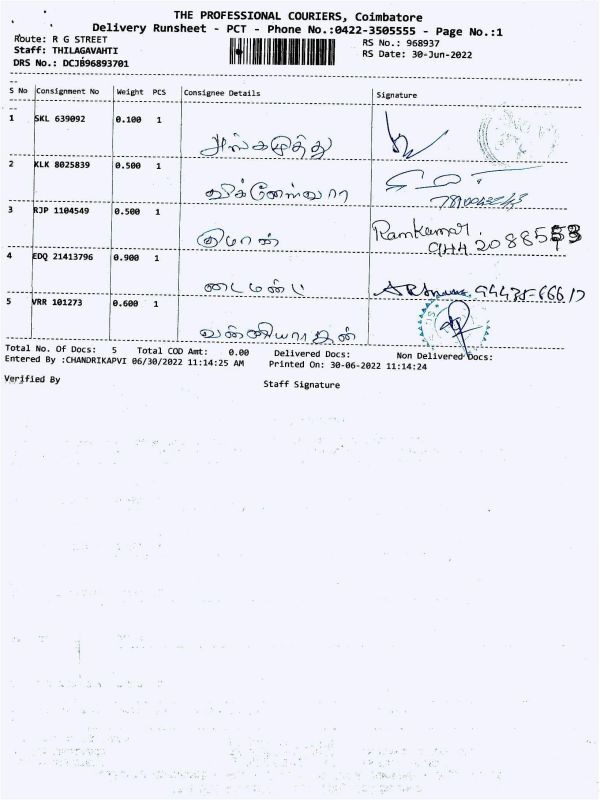 THE PROFESSIONAL COURIERS, Coimbatore
Delivery Runsheet - PCT - Phone No.:0422-3505555 - Page No.:1
Route: R G STREET
RS No.: 968937
Staff: THILAGAVAHTI
RS Date: 30-Jun-2022
DRS No.: DCJB96893701
S No Consignment No Weight PCS Consignee Details Signature
1 SKL 639092 0.100 1
2 KLK 8025839 0.500 1
விக்னேஸ்வரா
3 RJP 1104549 0.500 1 Ramkumar.
4 EDQ 21413796 0.900 1
டைமண்ட்
5 VRR 101273 0.600 1
Total No. Of Docs: 5 Total COD Amt: 0.00 Delivered Docs: Non Delivered Docs:
Entered By :CHANDRIKAPVI 06/30/2022 11:14:25 AM Printed On: 30-06-2022 11:14:24
Verified By Staff Signature